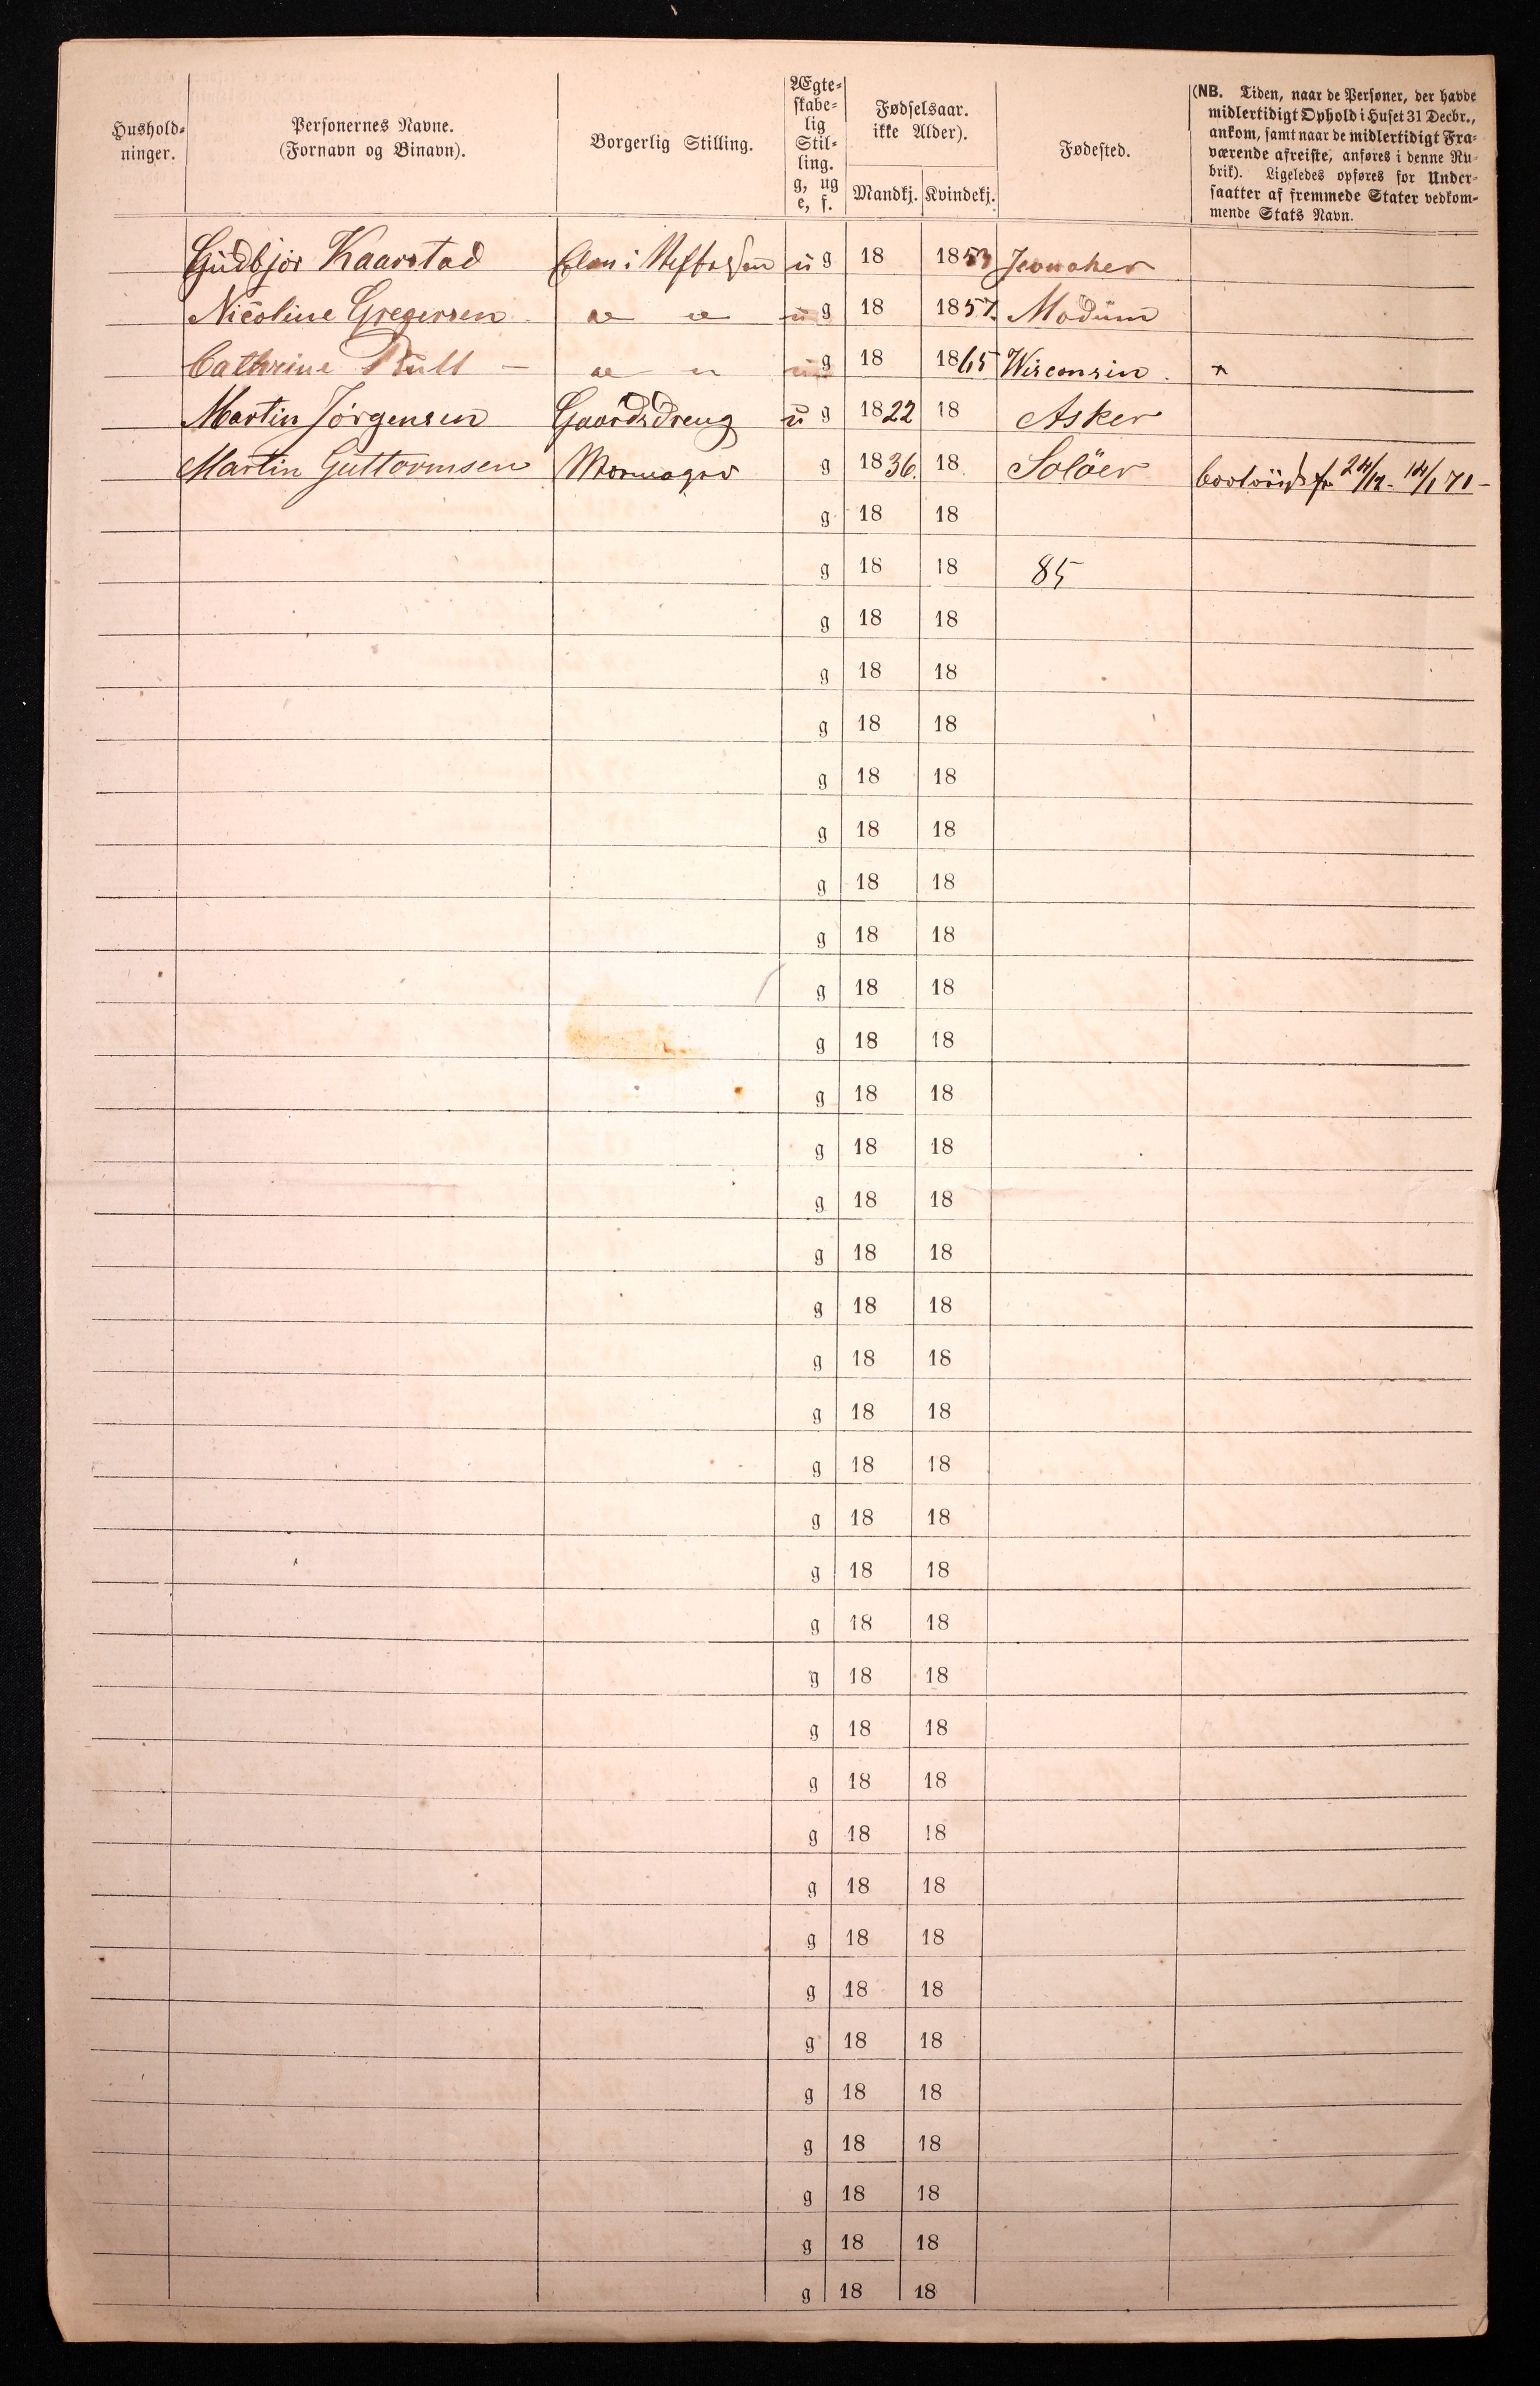 Hushold-
ninger.
Personernes Navne.
(Fornavn og Binavn).
Borgerlig Stilling.
Ægte-
skabe-
lig
Stil-
ling.
g, ug
e, f.
Fødselsaar.
ikke Alder).
Mandkj. Kvindekj.
Fødested.
(NB. Tiden, naar de Personer, der havde
midlertidigt Ophold i Huset 31 Decbr.,
ankom, samt naar de midlertidigt Fra-
værende afreiste, anføres i denne Ru-
brik). Ligeledes opføres for Under-
saatter af fremmede Stater vedkom-
mende Stats Navn.
Gudbjör Kaarstad u g 18 1853 Jevnaker
Nicoline Gregersen u g 18 1857. Modum
Cathrine Rull — u g 18 1865 Wisconsin.
Martin Jörgensen Gaardsdreng u g 1822 18 Asker
Martin Guttormsen g 1836. 18 Solöer 24/12 - 14/1 71 -
g 18 18
g 18 18 85
g 18 18
g 18 18
g 18 18
g 18 18
g 18 18
g 18 18
g 18 18
g 18 18
g 18 18
g 18 18
g 18 18
g 18 18
g 18 18
g 18 18
g 18 18
g 18 18
g 18 18
g 18 18
g 18 18
g 18 18
g 18 18
g 18 18
g 18 18
g 18 18
g 18 18
g 18 18
g 18 18
g 18 18
g 18 18
g 18 18
g 18 18
g 18 18
g 18 18